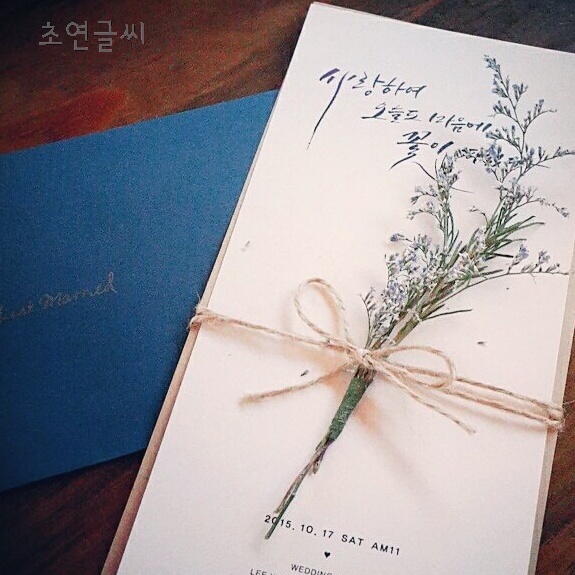 초연글씨
사랑하여
오늘도 마음에
꽃이
Just Married
2015. 10. 17 SAT AM11
♥
WEDDING
LEE